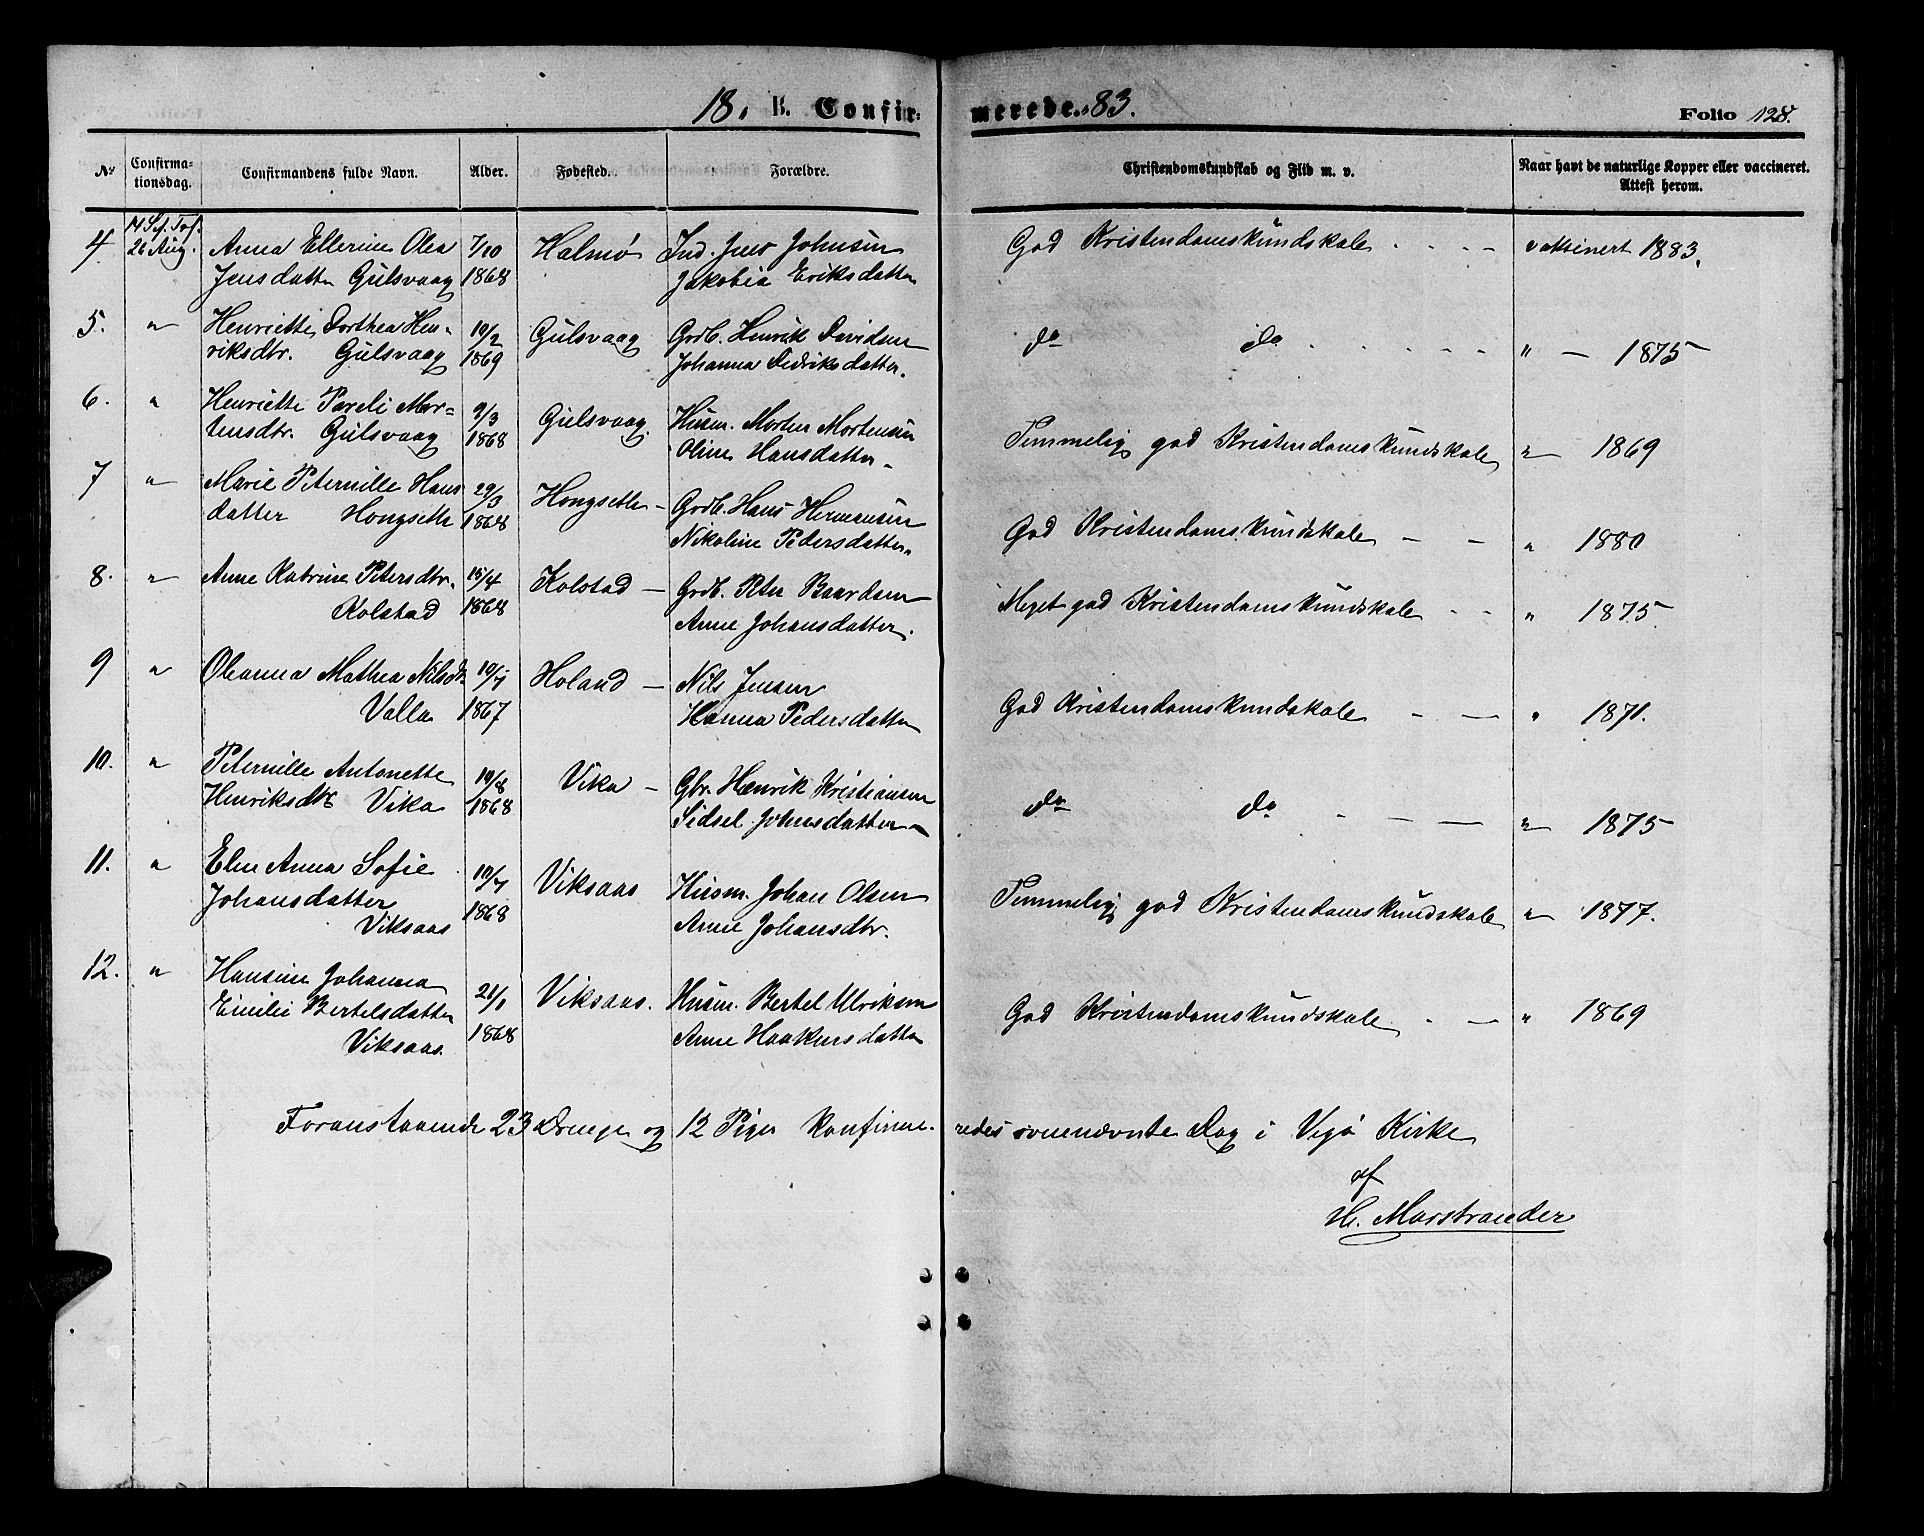 18. B. Confir- merede. 83. Folio 128.
No Confirma-tionsdag. Confirmandens fulde Navn. Alder. Fødested. Forældre. Christendomskundskab og Flid m. v. Naar havt de naturlige Kopper eller vaccineret. Attest herom.
14 S. f. Tref.
4 26 Aug. Anna Ellerine Olea 7/10 Halmø Ind. Jens Johnsen God Kristendomskundskab - - - - vaksinert 1883.
Jensdatter Gulsvaag 1868 Jakobia Eriksdatter
5. " Henriette Dorthea Hen- 19/2 Gulsvaag Grdb. Henrik Davidsen do do - - - - - " - 1875
riksdtr. Gulsvaag 1869 Johanna Didriksdatter.
6. " Henriette Pareli Mor- 9/3 Gulsvaag. Husm. Morten Mortensen Temmelig god Kristendomskundskab " 1869
tensdtr. Gulsvaag 1868 Oline Hansdatter
7 " Marie Peternille Hans 29/3 Hongseth - Grdb. Hans Hermansen God Kristendomskundskab - - " 1880
datter Hongseth 1868 Nikoline Pedersdatter
8. " Anne Katrine Petersdtr. 15/4 Kolstad - Grdb. Peter Baardsen Meget god Kristendomskundskab - - " 1875
Kolstad 1868 Anne Johansdatter.
9 " Oleanna Mathea Nilsdt. 19/7 Holand - Nils Jensen God Kristendomskundskab - - " 1871.
Valla 1867 Hanna Pedersdatter
10. " Peternille Antonette 19/8 Vika - Gbr. Henrik Kristiansen do do - - - " 1875
Henriksdtr Vika 1868 Sidsel Johnsdatter
11. " Elen Anna Sofie 10/7 Viksaas Husm. Johan Olsen Temmelig god Kristendomskundskab " 1877.
Johansdatter 1868 Anne Johansdtr.
Viksaas
12. " Hansine Johanna 21/1 Viksaas. Husm. Bertel Ulriksen God Kristendomskundskab - - " 1869
Emilie Bertelsdatter 1868 Anne Haakensdatter
Viksaas.
Foranstaaende 23 Drenge og 12 Piger konfirme- redes ovennævnte Dag i Vegø Kirke
af
H. Marstrander